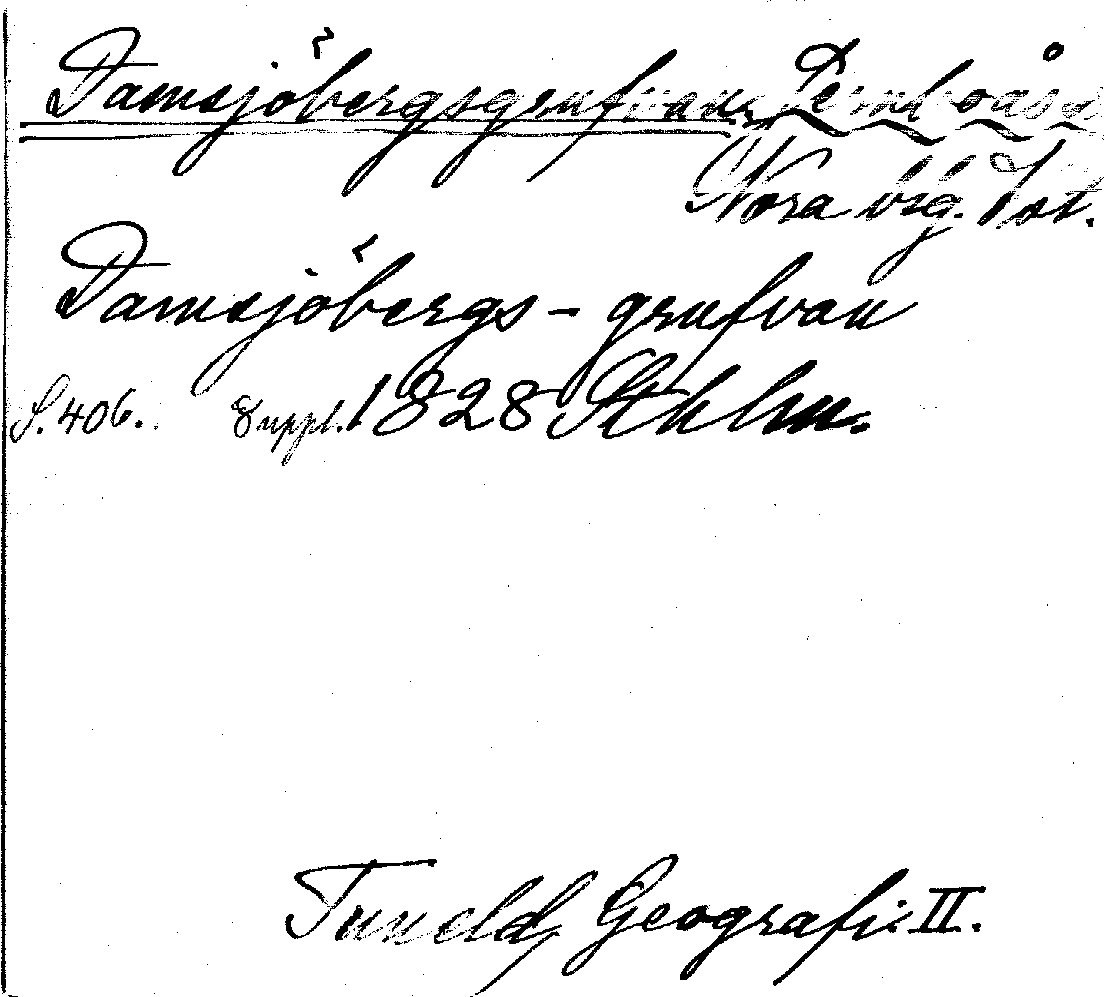 Damsjöbergsgrufvan, Jernboås
Nora
Damsjöbergs - grufvan
S. 406. Suppl. 1828 Sthlm.
Tuneld, Geografi. II.